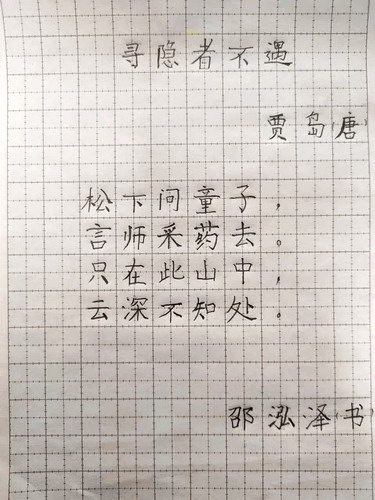 寻隐者不遇
贾岛(唐)
松下问童子，
言师采药去。
只在此山中，
云深不知处。
邵泓泽(书)